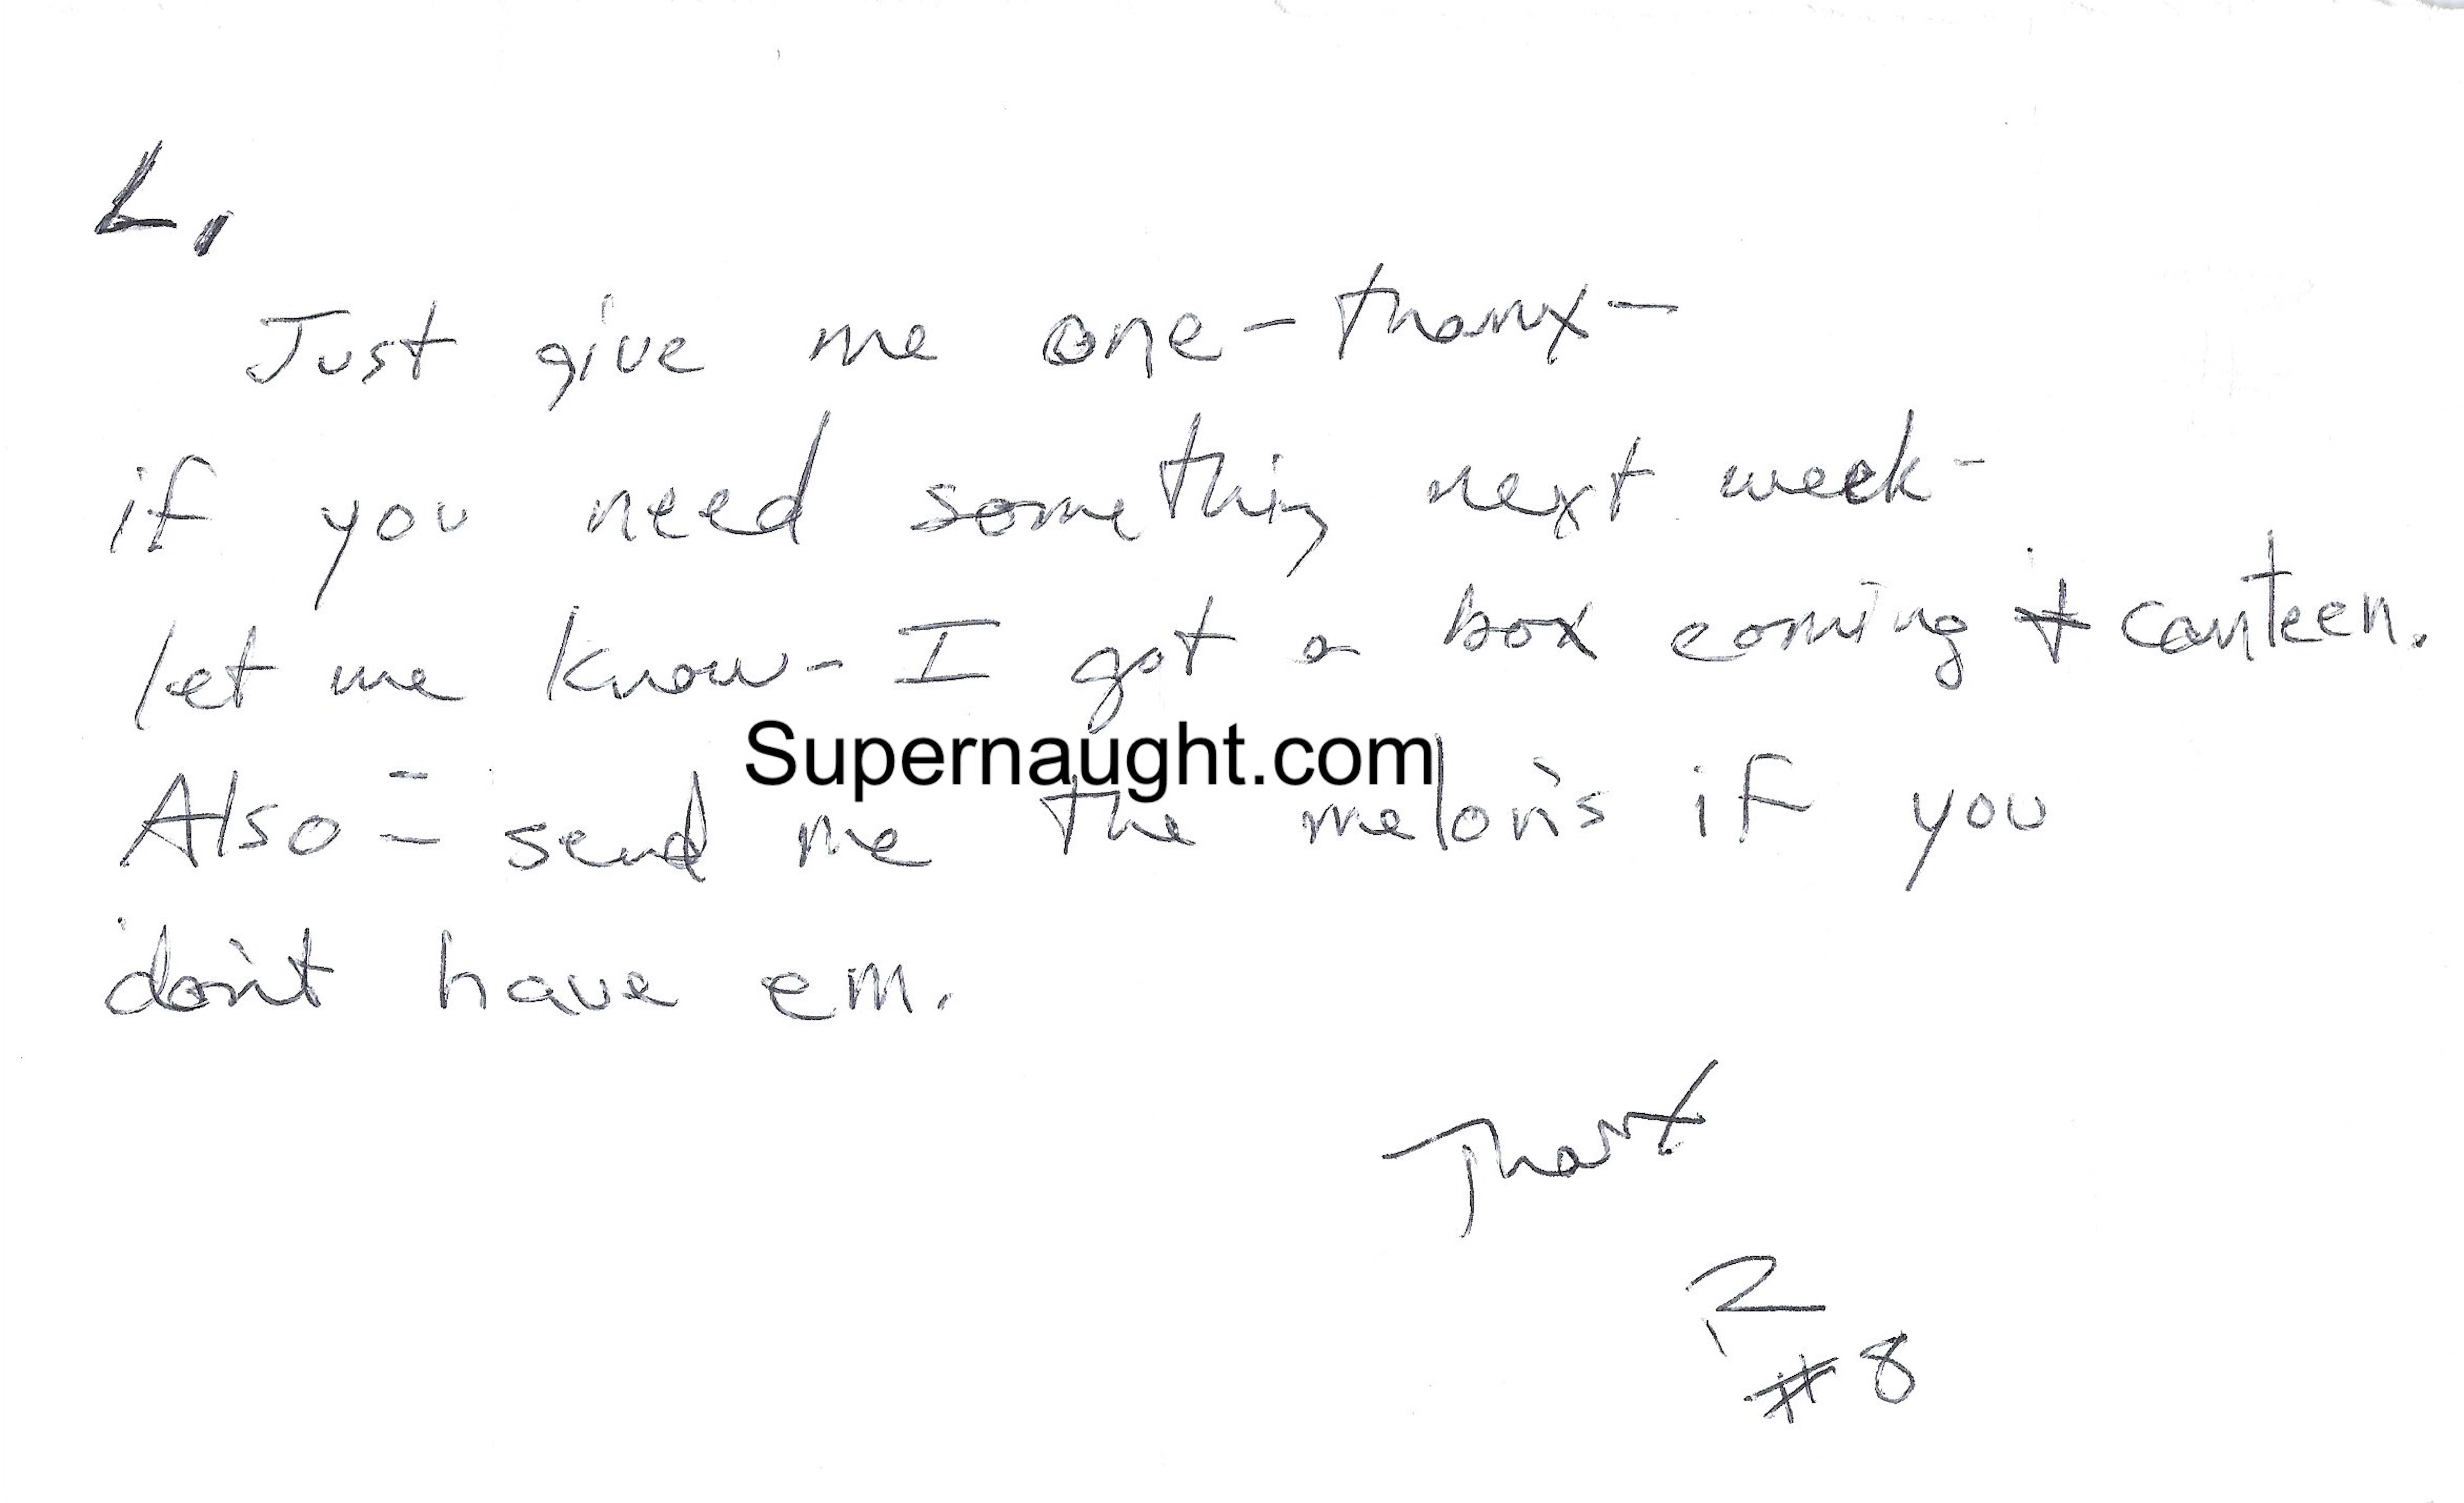 L,
Just give me one - thanx -
if you need something next week -
let me know - I got a box coming + canteen.
Supernaught.com
Also - send me the melon's if you
don't have em.
Thanx
R
#8